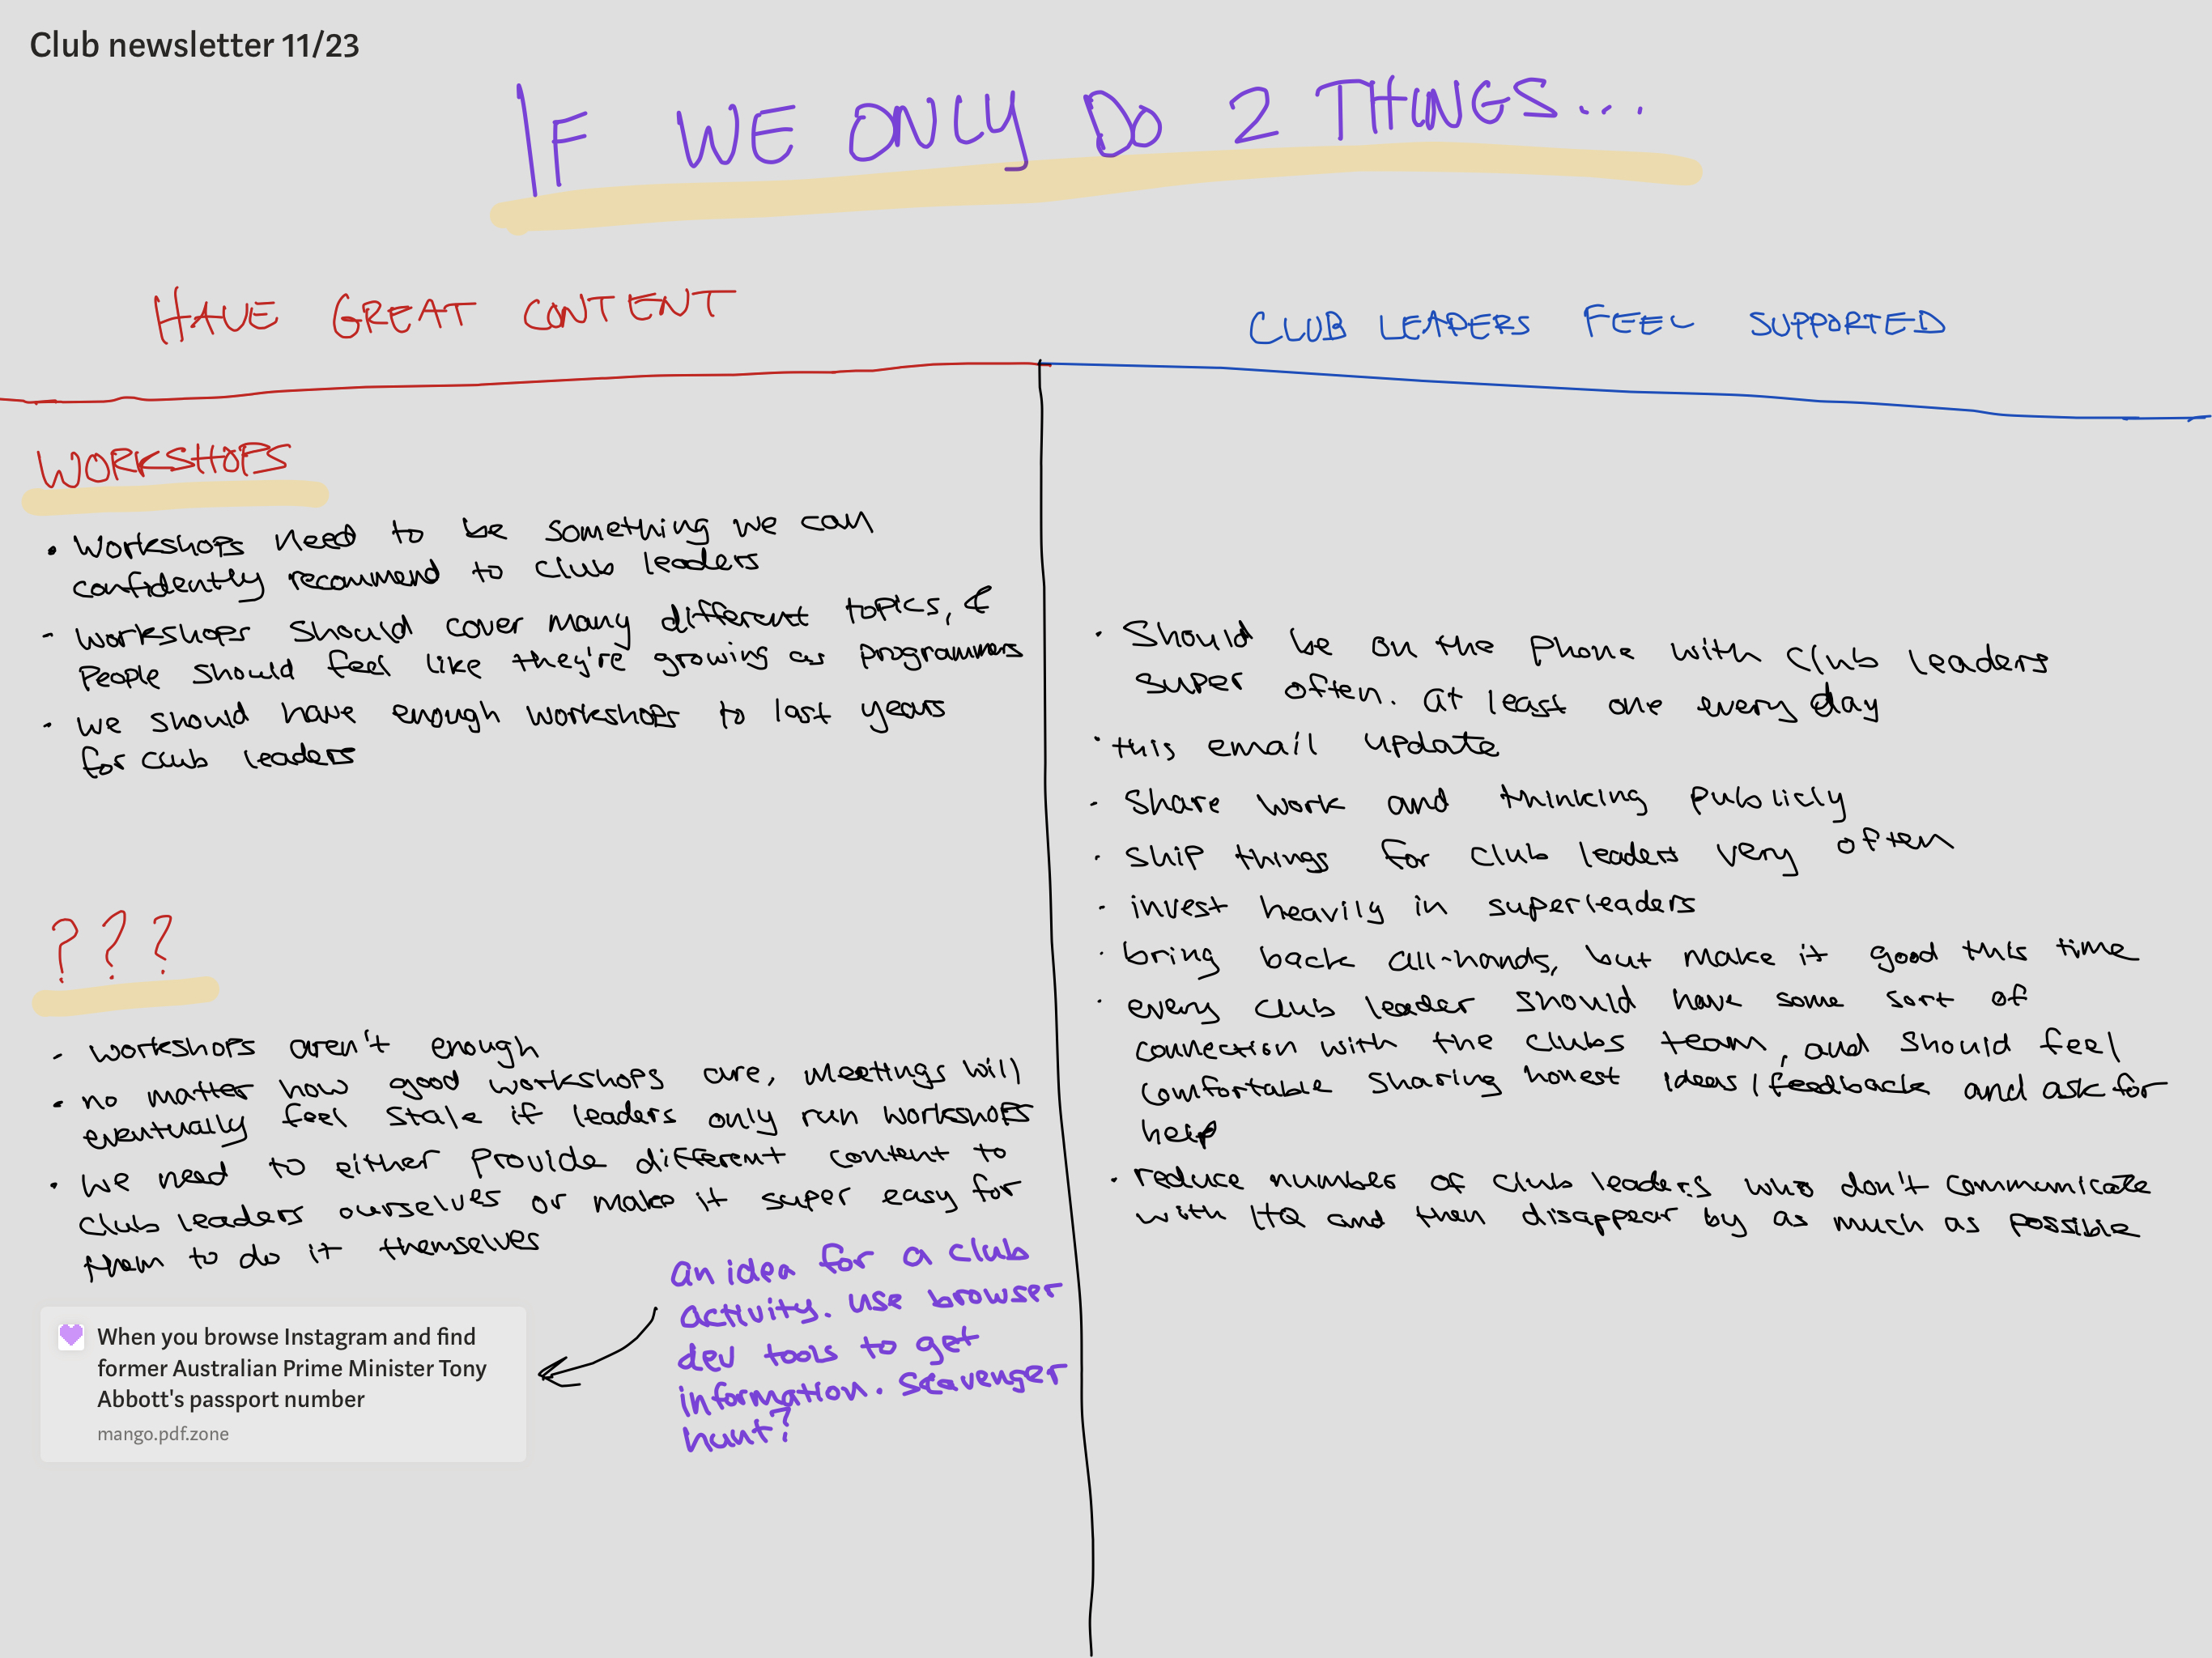 Club newsletter 11/23
IF WE ONLY DO 2 THINGS...
HAVE GREAT CONTENT
WORKSHOPS
• Workshops need to be something we can
confidently recommend to club leaders
- workshops should cover many different topics, &
people should feel like they're growing as programmers
- we should have enough workshops to last years
for club leaders
???
- workshops aren't enough
- no matter how good workshops are, meetings will
eventually feel stale if leaders only run workshops
• we need to either provide different content to
club leaders ourselves or make it super easy for
them to do it themselves
When you browse Instagram and find
former Australian Prime Minister Tony
Abbott's passport number
mango.pdf.zone
an idea for a club
activity. use browser
dev tools to get
information. scavenger
hunt?
CLUB LEADERS FEEL SUPPORTED
• Should be on the phone with club leaders
super often. at least one every day
• this email update
- share work and thinking publicly
• ship things for club leaders very often
- invest heavily in superleaders
• bring back all-hands, but make it good this time
• every club leader should have some sort of
connection with the clubs team, and should feel
comfortable sharing honest ideas/feedback and ask for
help
• reduce number of club leaders who don't communicate
with HQ and then disappear by as much as possible